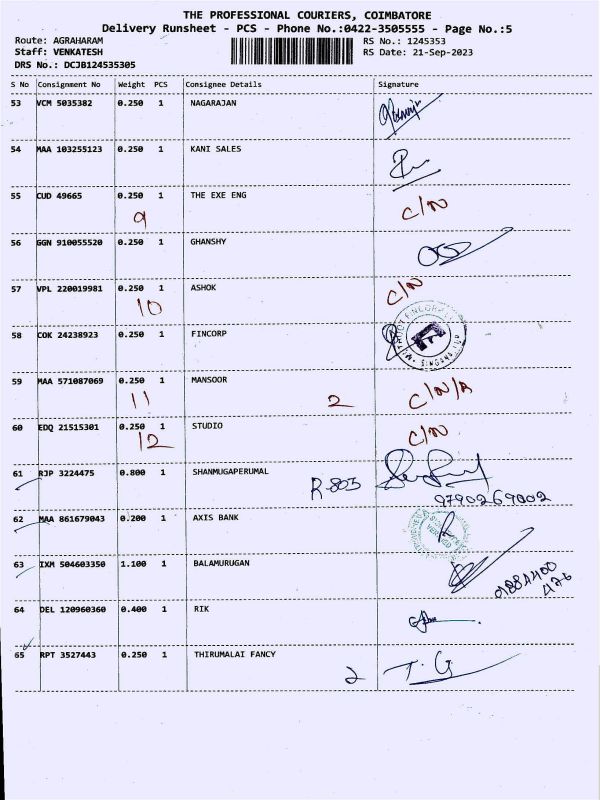 THE PROFESSIONAL COURIERS, COIMBATORE
Delivery Runsheet - PCS - Phone No.:0422-3505555 - Page No.:5
Route: AGRAHARAM RS No.: 1245353
Staff: VENKATESH RS Date: 21-Sep-2023
DRS No.: DCJB124535305
S No Consignment No Weight PCS Consignee Details Signature
53 VCM 5035382 0.250 1 NAGARAJAN
54 MAA 103255123 0.250 1 KANI SALES
55 CUD 49665 0.250 1 THE EXE ENG C/N
9
56 GGN 910055520 0.250 1 GHANSHY
57 VPL 220019981 0.250 1 ASHOK C/N
10
58 COK 24238923 0.250 1 FINCORP
59 MAA 571087069 0.250 1 MANSOOR C/N/A
11 2
60 EDQ 21515301 0.250 1 STUDIO C/N
12
61 RJP 3224475 0.800 1 SHANMUGAPERUMAL
R-803
9790269002
62 MAA 861679043 0.200 1 AXIS BANK
63 IXM 504603350 1.100 1 BALAMURUGAN
64 DEL 120960360 0.400 1 RIK
65 RPT 3527443 0.250 1 THIRUMALAI FANCY
2 T.G